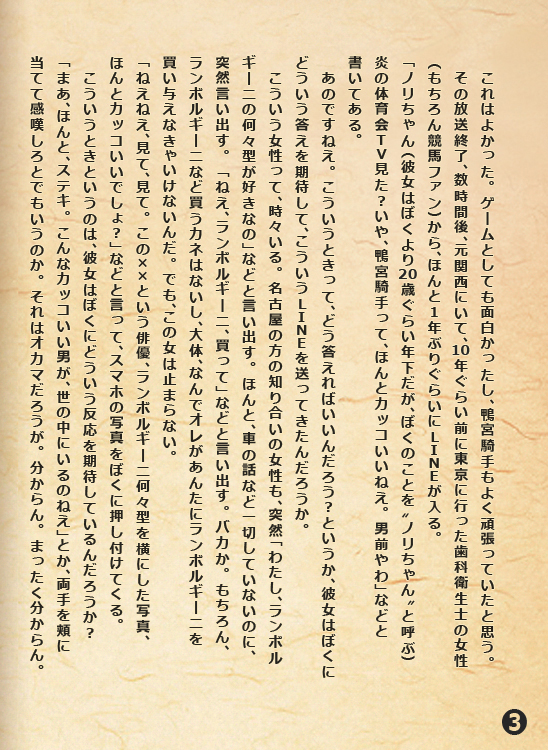 これはよかった。ゲームとしても面白かったし、鴨宮騎手もよく頑張っていたと思う。
その放送終了、数時間後、元関西にいて、10年ぐらい前に東京に行った歯科衛生士の女性
(もちろん競馬ファン)から、ほんと1年ぶりぐらいにLINEが入る。
「ノリちゃん(彼女はぼくより20歳ぐらい年下だが、ぼくのことを〝ノリちゃん〟と呼ぶ)
炎の体育会TV見た？いや、鴨宮騎手って、ほんとカッコいいねえ。男前やわ」などと
書いてある。
あのですねえ。こういうときって、どう答えればいいんだろう？というか、彼女はぼくに
どういう答えを期待して、こういうLINEを送ってきたんだろうか。
こういう女性って、時々いる。名古屋の方の知り合いの女性も、突然「わたし、ランボル
ギーニの何々型が好きなの」などと言い出す。ほんと、車の話など一切していないのに、
突然言い出す。「ねえ、ランボルギーニ、買って」などと言い出す。バカか。もちろん、
ランボルギーニなど買うカネはないし、大体、なんでオレがあんたにランボルギーニを
買い与えなきゃいけないんだ。でも、この女は止まらない。
「ねえねえ、見て、見て。この××という俳優、ランボルギーニ何々型を横にした写真、
ほんとカッコいいでしょ？」などと言って、スマホの写真をぼくに押し付けてくる。
こういうときというのは、彼女はぼくにどういう反応を期待しているんだろうか？
「まあ、ほんと、ステキ。こんなカッコいい男が、世の中にいるのねえ」とか、両手を頬に
当てて感嘆しろとでもいうのか。それはオカマだろうが。分からん。まったく分からん。
3